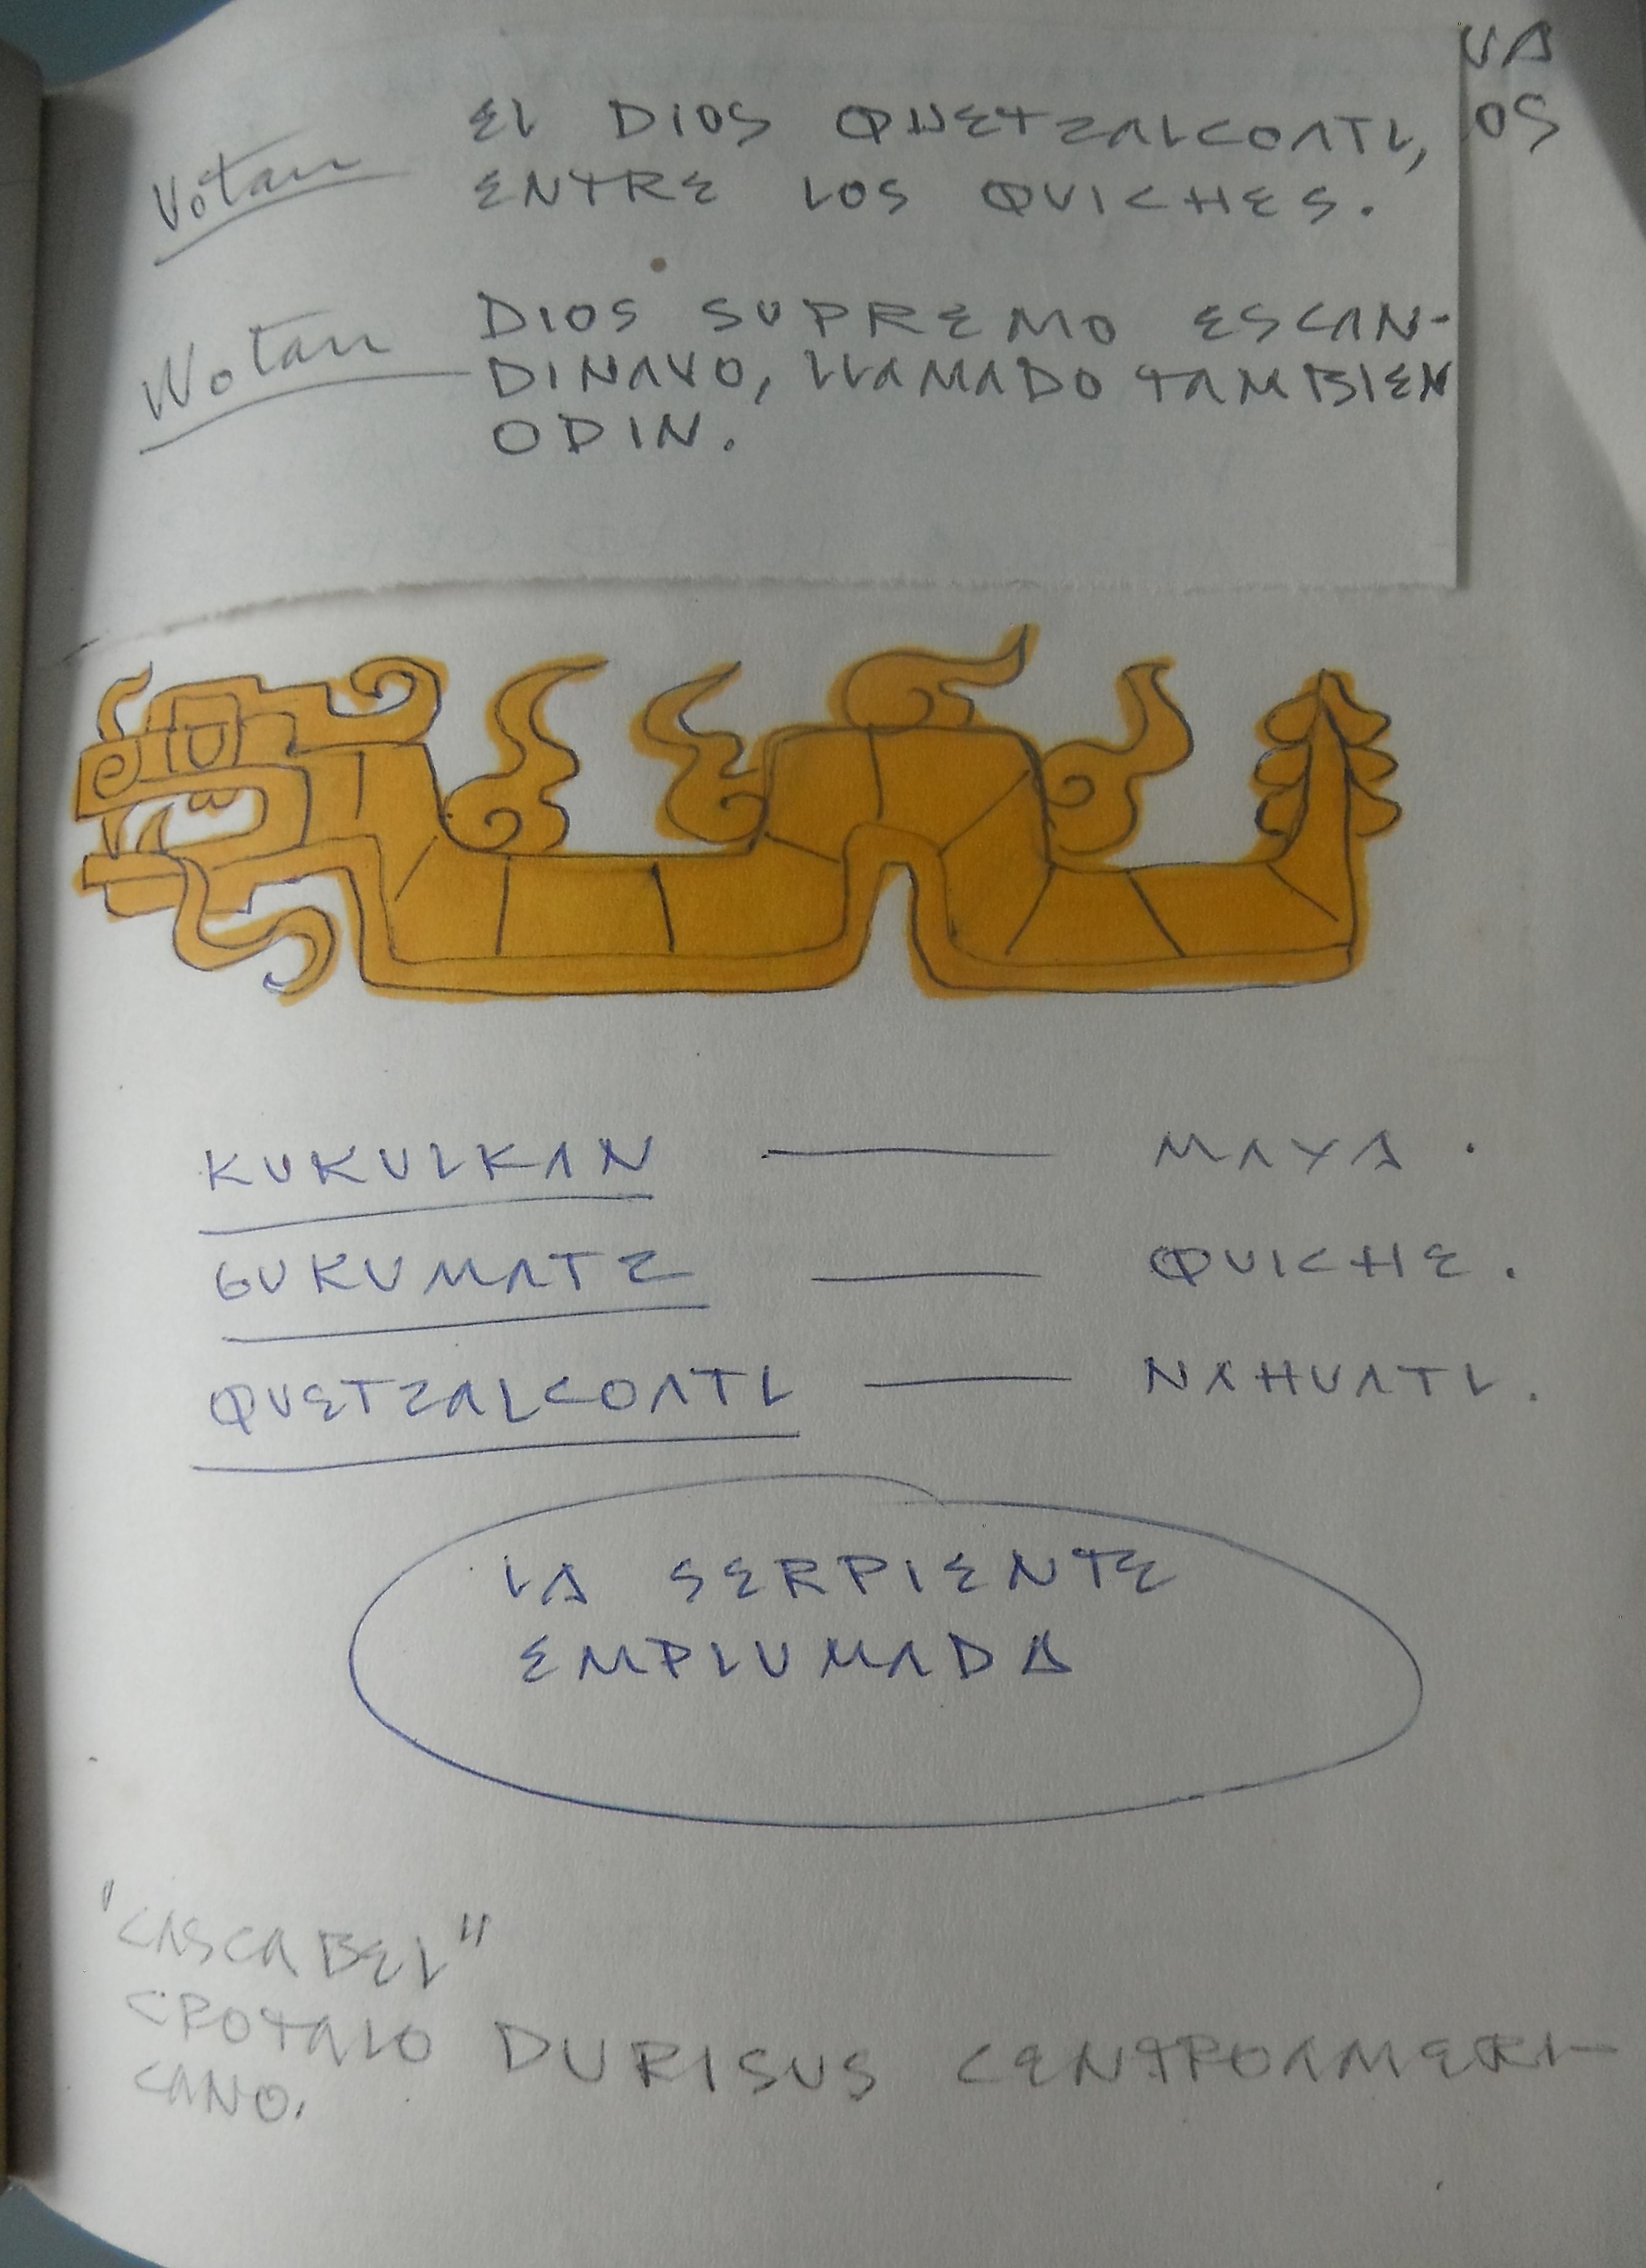 VA
OS
Votan EL DIOS QUETZALCOATL,
ENTRE LOS QUICHES.
Wotan DIOS SUPREMO ESCAN-
DINAVO, LLAMADO TAMBIEN
ODIN.
KUKULKAN — MAYA.
GUKUMATZ — QUICHE.
QUETZALCOATL — NAHUATL.
LA SERPIENTE
EMPLUMADA
"CASCABEL"
CROTALO DURISUS CENTROAMERI-
CANO.